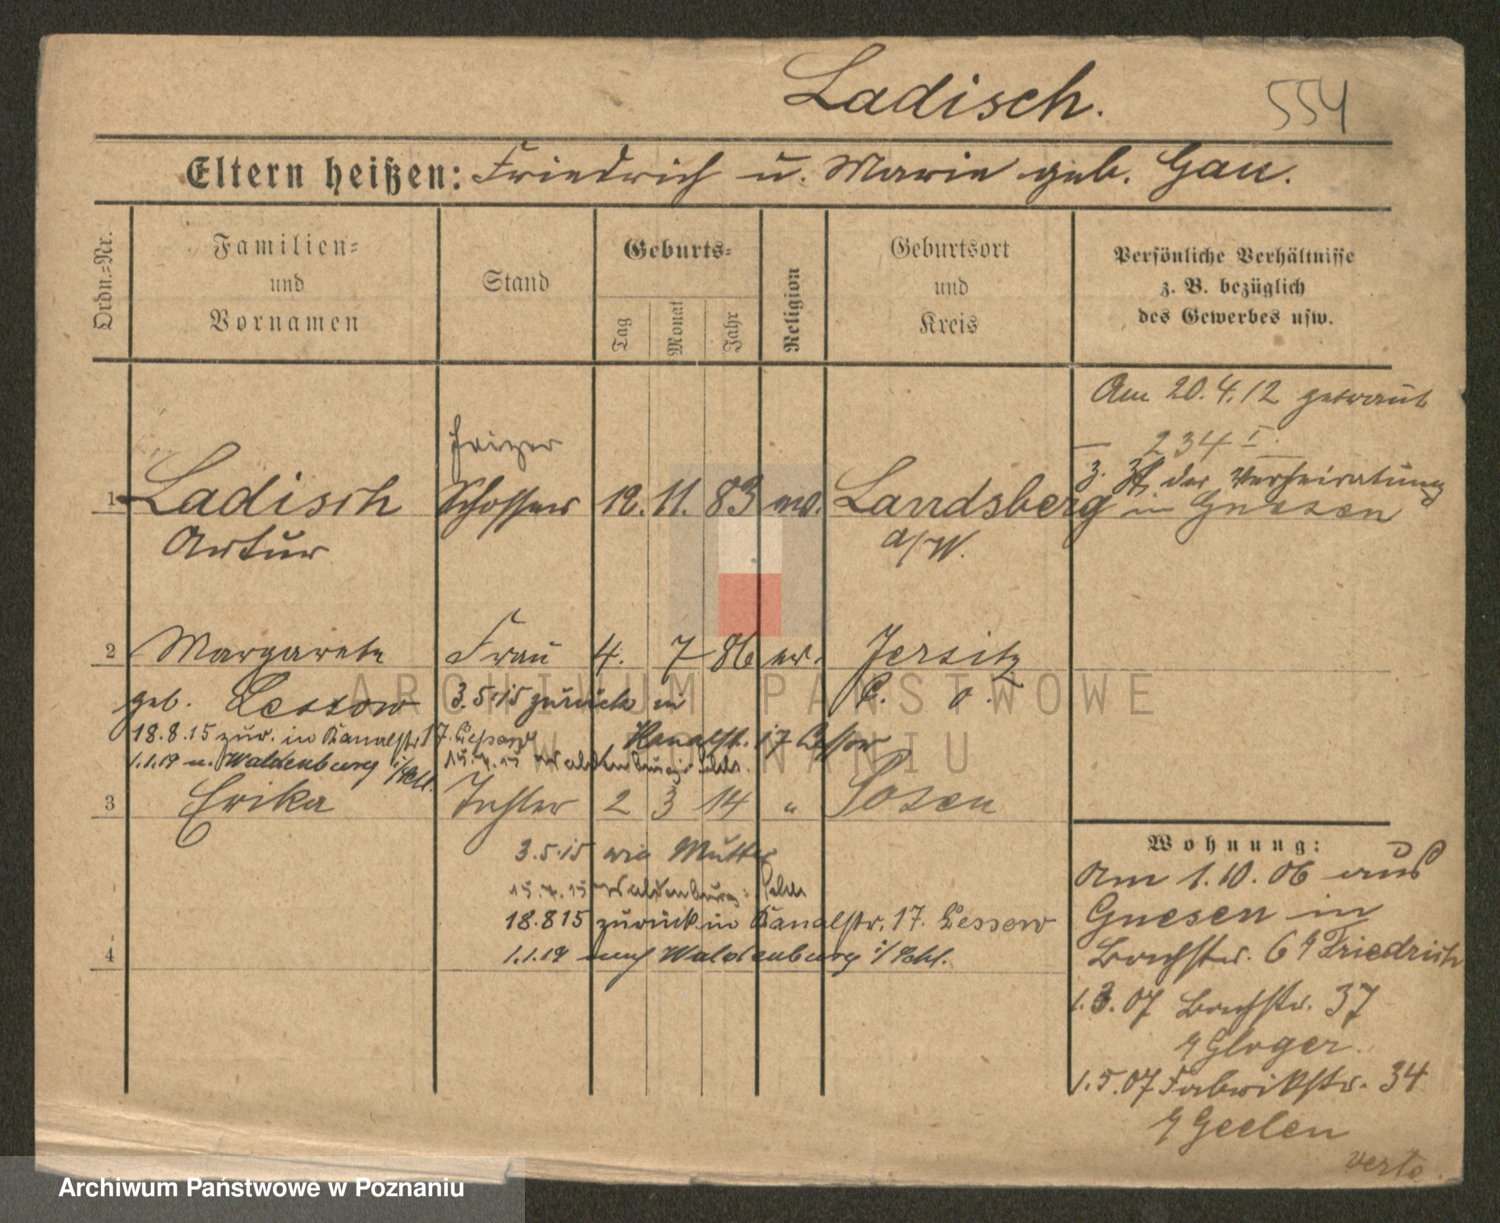 Ladisch.
554
Eltern heißen: Friedrich u. Marie geb. Gau.
Ordn.=Nr.
Familien= und Vornamen
Stand
Geburts=
Tag
Monat
Jahr
Religion
Geburtsort und Kreis
Persönliche Verhältnisse
z. B. bezüglich
des Gewerbes usw.
Am 20.4.12 getraut
234 I.
z. Zt. der Verheiratung
in Gnesen
Heizer
1 Ladisch Schlosser 12. 11. 83 ev. Landsberg
Artur a/W.
2 Margarete Frau 4. 7 86 ev. Jersitz
geb. Lessow 3.5.15 zurück in P. O.
18.8.15 zur. in Kanalstr. 17. Lessow Kanalst. 17 Lessow
1.1.19 n. Waldenburg i/Schl. Waldenburg i. Schles.
3 Erika Tochter 2 3 14 " Posen
3.5.15 wie Mutter
Waldenburg i. Schles
18.8.15 zurück in Kanalstr. 17. Lessow
4 1.1.19 nach Waldenburg i/Schl.
Wohnung:
Am 1.10.06 aus
Gnesen in
Bachstr. 6 b/Friedrich
1.3.07 Bachstr. 37
b/Gloger.
1.5.07 Fabrikstr. 34
b/Geelen
verte.
ARCHIWUM PAŃSTWOWE
W POZNANIU
Archiwum Państwowe w Poznaniu